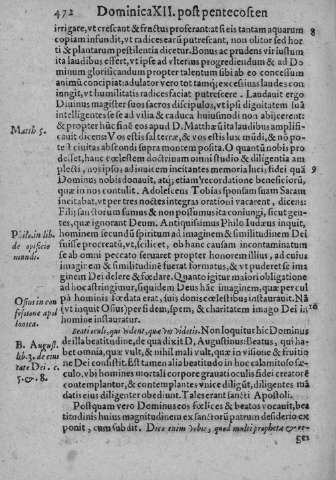 472 Dominica XII. post pentecosten
irrigare, vt crescant & fructus proferant: at si eis tantam aquarum 8
copiam infundit, vt radices earū putrescant, non olitor sed hor-
ti & plantarum pestilentia dicetur. Bonus ac prudens vir iustum
ita laudibus effert, vt ipse ad vlterius progrediendum & ad Do
minum glorificandum propter talentum sibi ab eo concessium
animū concipiat: adulator vero tot tamq; excessiuas laudes con
iungit, vt humilitatis radices faciat putrescere. Laudaut ergo
Diuinus magister suos sacros discipulos, vt ipsi dignitatem suā
intelligentes se se ad vilia & caduca huiusmodi non abijcerent:
& propter hūc finē eos apud D. Matthæū ita laudibus amplifi-
Matth. 5. cauit dicens Vos estis sal terræ, & vos estis lux mūdi, & nō po-
te st ciuitas abscondi supra montem posita. O quantū nobis pro
desset, hanc cœlestem doctrinam omni studio & diligentia am
plecti, nosipsos ad inuicem incitantes memoria huius fidei quā 9
Dominus nobis donauit, atq; etiam recordatione beneficiorū,
quæ in nos contulit. Adolescens Tobias sponsam suam Saram
incitabat, vt per tres noctes integras orationi vacarent, dicens:
Filij sanctorum sumus & non possumus ita coniungi, sicut gen-
tes, quæ ignorant Deum. Antiquissimus Philo Iudæus inquit,
Philo. in lib. hominem secundū spiritum ad imaginem & similitudinem Dei
de opificio fuisse procreatū, vt, scilicet, ob hanc causam incontaminatum
mundi. se ab omni peccato seruaret propter honorem illius, ad cuius
imaginem & similitudinē fuerat formatus, & vt puderet se ima
ginem Dei delere & fœdare. Quanto igitur maiori obligatione
ad hoc astringimur, siquidem Deus hāc imaginem, quæ per cul
pā hominis fœdata erat, suis donis cœlestibus instaurauit. Nā
Osius in con 10 vt inquit Osius per fidem, spem, & charitatem imago Dei in
fessione apol homine instauratur.
lonica. Beati oculi, qui vident, quæ vos videtis. Non loquitur hic Dominus
B. August. de illa beatitudine, de qua dixit D, Augustinus: Beatus, qui ha-
lib. 3. de ciui bet omnia, quæ vult, & nihil mali vult, quæ in visione & fruitio
tate Dei. c. ne Dei consistit. Est tamen alia beatitudo in hoc calamitoso sæ-
5. & 8. culo, vbi homines mortali corpore grauati oculis fidei creatorē
contemplantur, & contemplantes vnice diligūt, diligentes mā
datis eius diligenter obediunt. Tales erant sancti Apostoli.
Postquam vero Dominus eos fœlices & beatos vocauit, bea
titudinis huius magnitudinem ex sanctorū patrum desiderio ex
ponit, cum subdit. Dico enim vobis, quod multi prophetæ & re-
ges